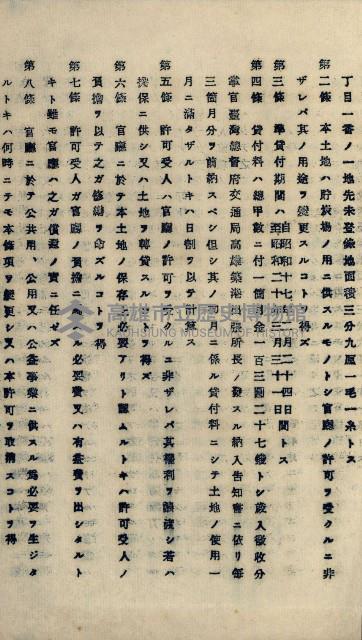 丁目一番ノ一地先未登錄地面積三分九厘一毛一糸トス
第二條 本土地ハ貯炭場ノ用ニ供スルモノトシ官廳ノ許可ヲ受クルニ非
ザレバ其ノ用途ヲ變更スルコトヲ得ズ
第三條 準貸付期間ハ自昭和十七年 月二十四日 至昭和二 年三月三十一日間トス
第四條 貸付料ハ總甲數ニ付一箇 金 百三圓二十七錢トシ歲入徵收分
掌官臺灣總督府交通局高雄築港 所長ノ發スル納入告知書ニ依リ每
三箇月分ヲ前納スベシ但シ其ノ 月ニ係ル貸付料ニシテ土地ノ使用一
月ニ滿タザルトキハ日割ヲ以テ計算ス
第五條 許可受人ハ官廳ノ許可ヲ ルニ非ザレバ其權利ヲ讓渡シ若ハ
擔保ニ供シ又ハ土地ヲ轉貸スル ヲ得ズ
第六條 官廳ニ於テ本土地ノ保存 必要アリト認ムルトキハ許可受人ノ
負擔ヲ以テ之ガ修繕ヲ命ズルコ 得
第七條 許可受人ガ官廳ノ負擔ニ ル必要費又ハ有益費ヲ出シタルト
キト雖モ官廳ハ之ガ償還ノ責ニ任ゼズ
第八條 官廳ニ於テ公共用、公用又ハ公益事業ニ供スル爲必要ヲ生ジタ
ルトキハ何時ニテモ本條項ヲ變更シ又ハ本許可ヲ取消スコトヲ得
高雄市立歷史博物館
KAOHSIUNG MUSEUM OF HISTORY